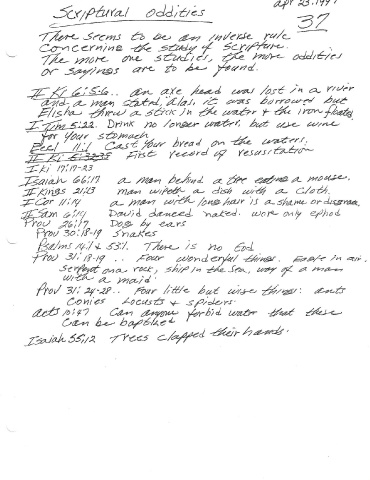 Scriptural oddities
apr 23.199
37
There seems to be an inverse rule
concerning the study of Scripture.
The more one studies, the more oddities
or sayings are to be found.
II Ki 6:5-6.. an axe head was lost in a river
and a man stated, alas, it was borrowed but
Elisha threw a stick in the water & the iron floated
I Tim 5:22. Drink no longer waters but use wine
for your stomach
Eccl 11:1 Cast your bread on the waters.
II Ki 5:32-35 First record of resusitation
I Ki 17:17-23
Isaiah 66:17 a man behind a tree eating a mouse.
II Kings 21:13 man wipeth a dish with a cloth.
I Cor 11:14 a man with long hair is a shame or disgrace.
II Sam 6:14 David danced naked. wore only ephod
Prov 26:17 Dog by ears
Prov 30:18-19 snakes
Psalms 14:1 & 53:1. There is no God
Prov 31:18-19 .. Four wonderful things. Eagle in air.
serpent on a rock, ship in the sea, way of a man
with a maid.
Prov 31:24-28.. Four little but wise things: ants
Conies Locusts & spiders
acts 10:47 Can anyone forbid water that these
can be baptized
Isaiah 55:12 Trees clapped their hands.